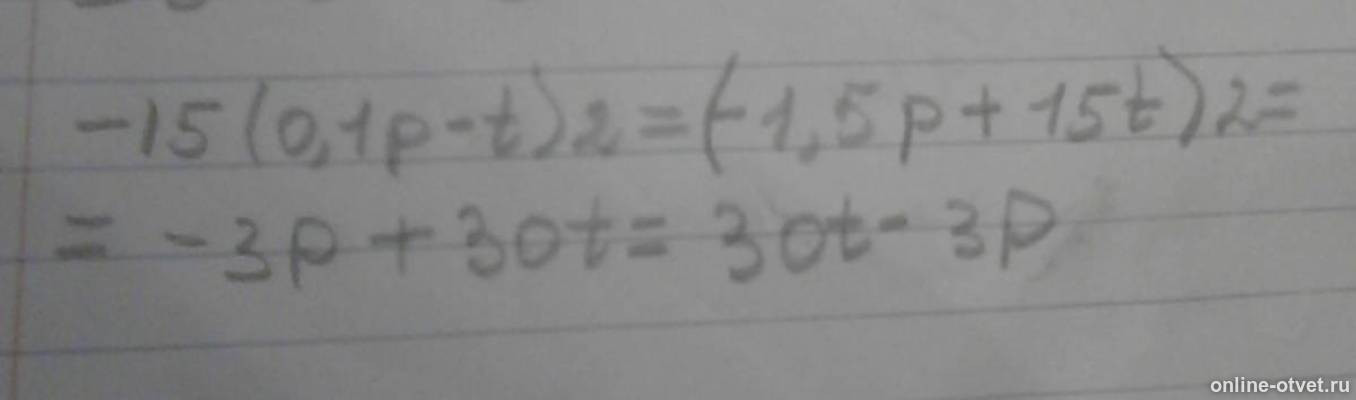 -15(0,1p-t)2=(-1,5p+15t)2=
=-3p+30t=30t-3p
online-otvet.ru